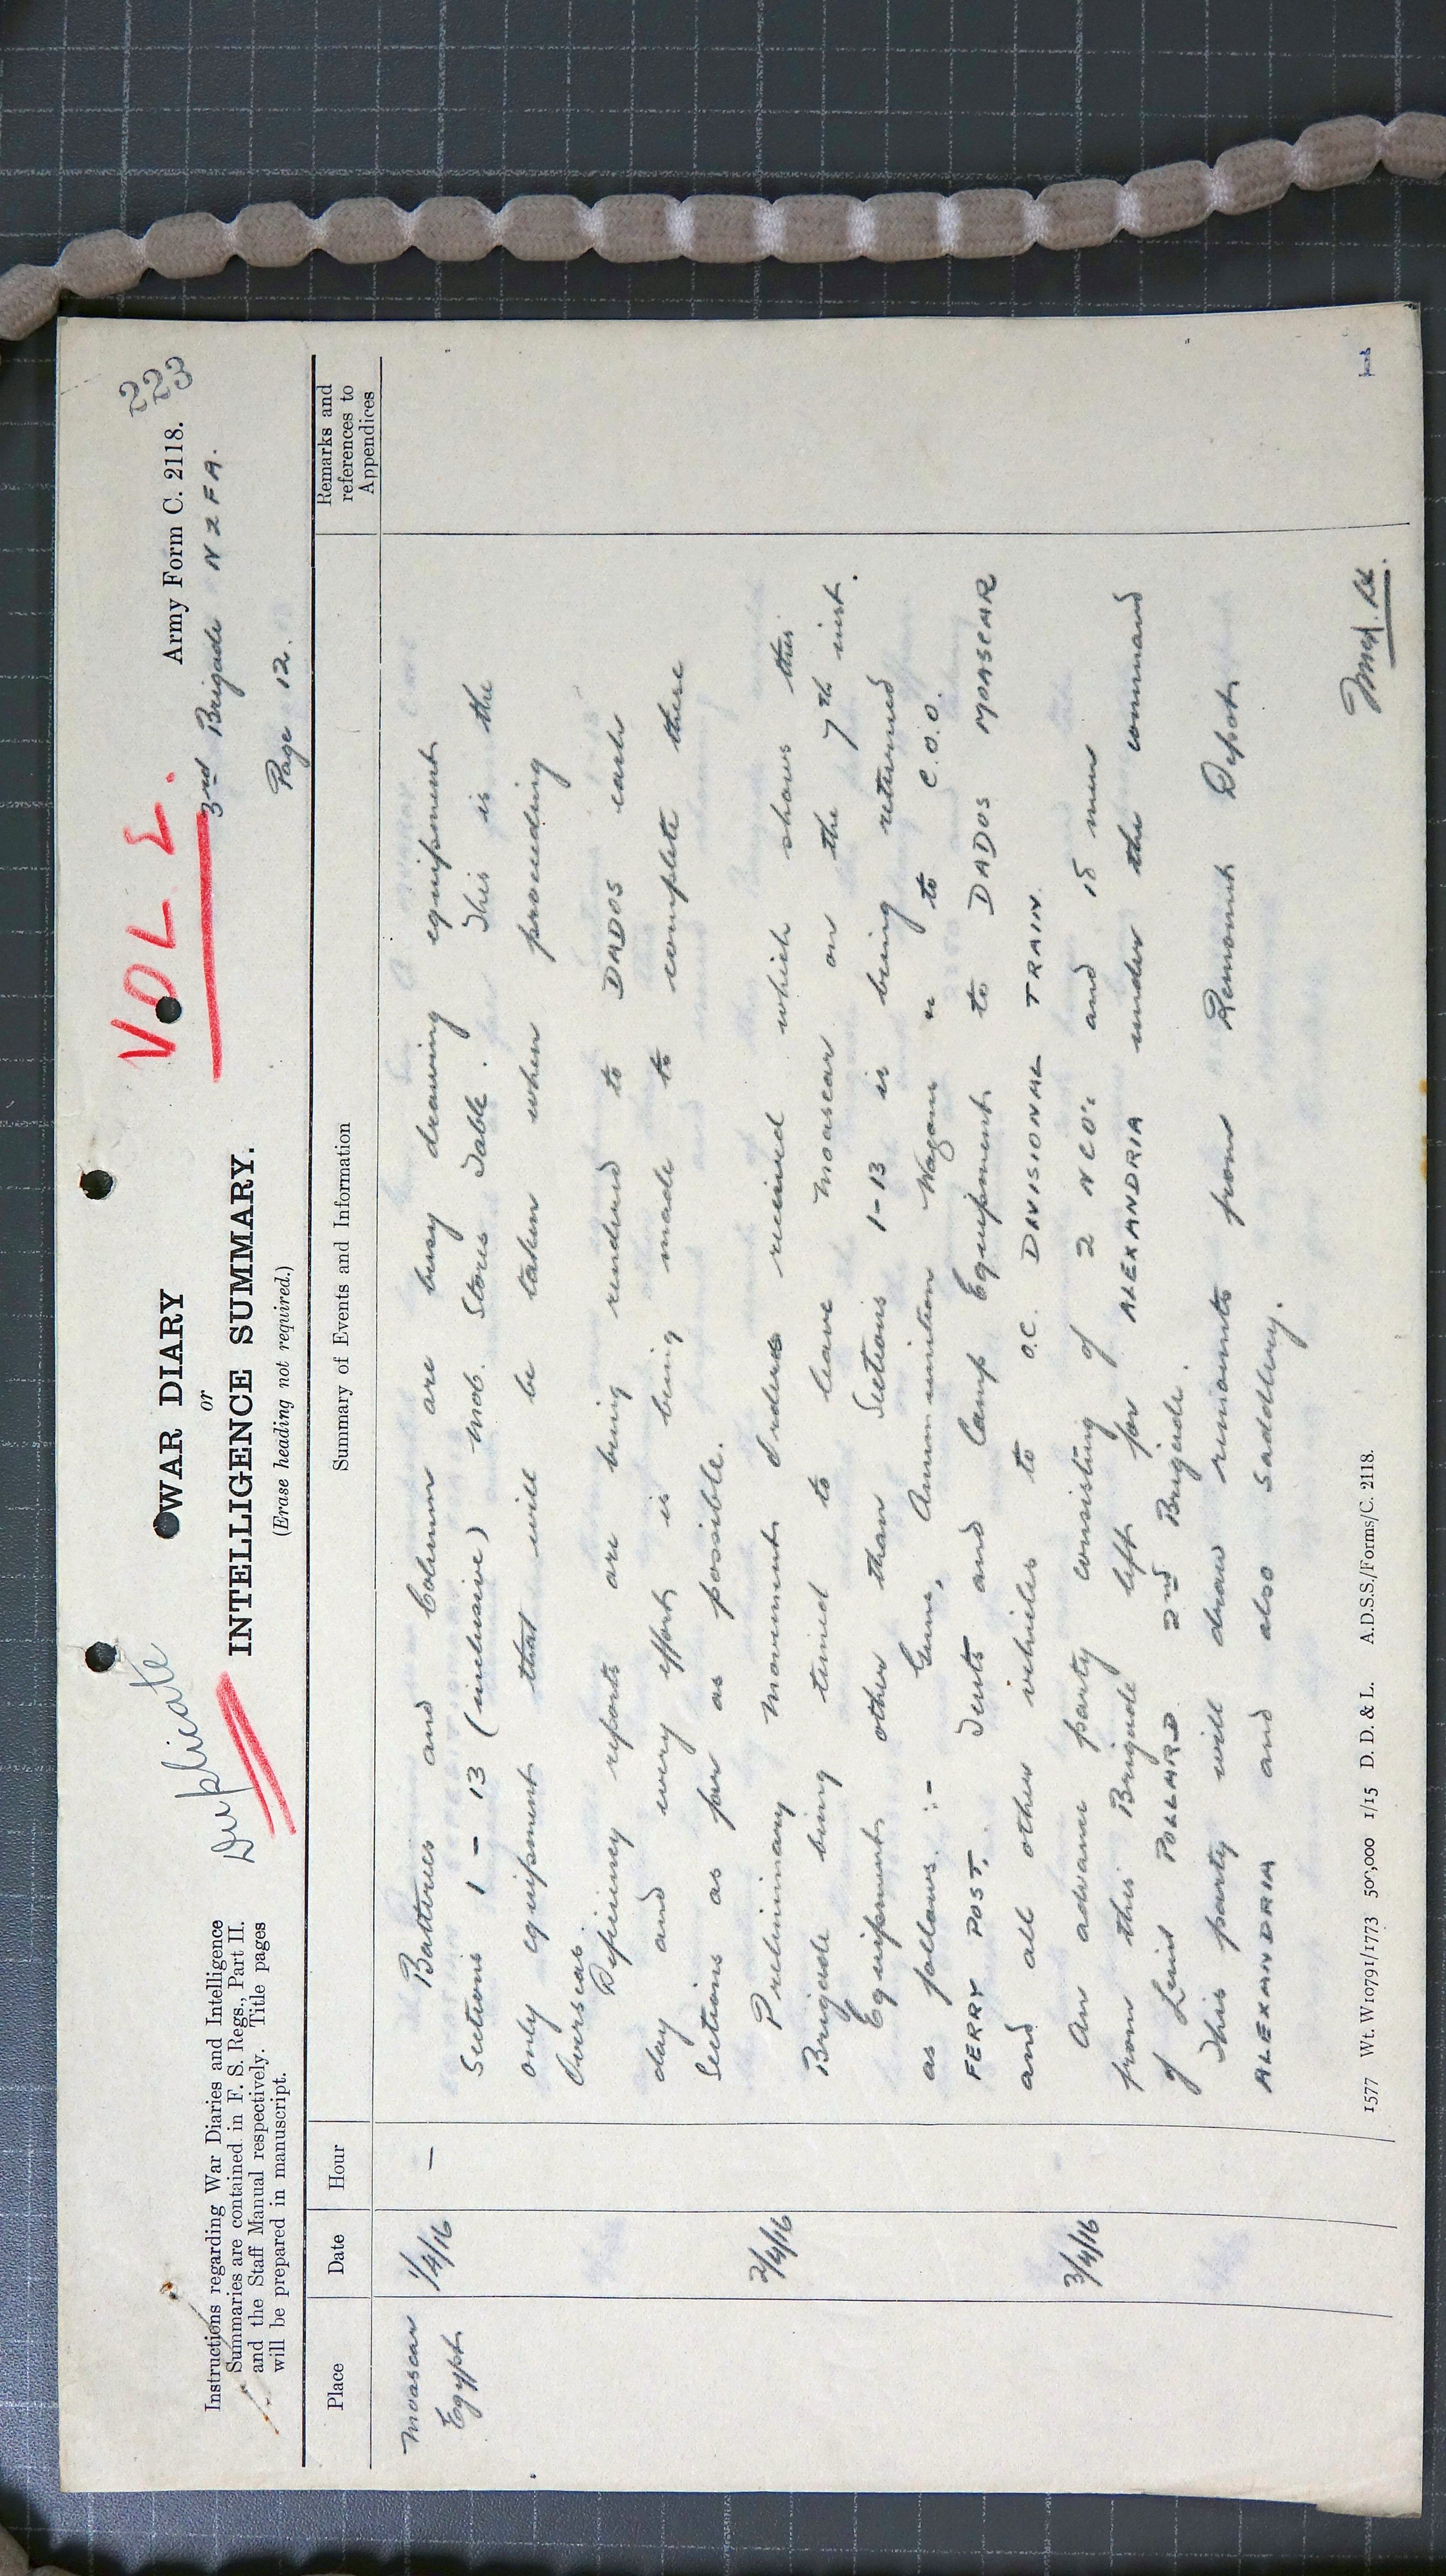 Instructions regarding War Diaries and Intelligence
Summaries are contained in F. S. Regs., Part II.
and the Staff Manual respectively. Title pages
will be prepared in manuscript.
Duplicate
WAR DIARY
or
INTELLIGENCE SUMMARY.
(Erase heading not required.)
VOL
223
Army Form C. 2118.
3rd Brigade NZFA.
Page 12.
Place Date Hour Summary of Events and Information Remarks and references to Appendices
Moascar 1/4/16 — Batteries and Column are busy drawing equipment
Egypt Sections 1 - 13 (inclusive) Mob. Stores Table. This is the
only equipment that will be taken when proceeding
Overseas.
Deficiency reports are being rendered to DADOS each
day and every effort is being made to complete these
Sections as far as possible.
2/4/16 Preliminary Movement Orders received which shows this
Brigade being timed to leave Moascar on the 7th inst.
Equipment other than Sections 1-13 is being returned
as follows:- Guns, Ammunition Wagons to C.O.O.
FERRY POST. Tents and Camp Equipment to DADOS MOASCAR
and all other vehicles to O.C. DIVISIONAL TRAIN.
3/4/16 An advance party consisting of 2 NCO's and 18 men
from this Brigade left for ALEXANDRIA under the command
of Lieut POLLARD 2nd Brigade.
This party will draw remounts from Remount Depot
ALEXANDRIA and also Saddlery.
1577 Wt. W10791/1773 500,000 1/15 D. D. & L. A.D.S.S./Forms/C. 2118.
1